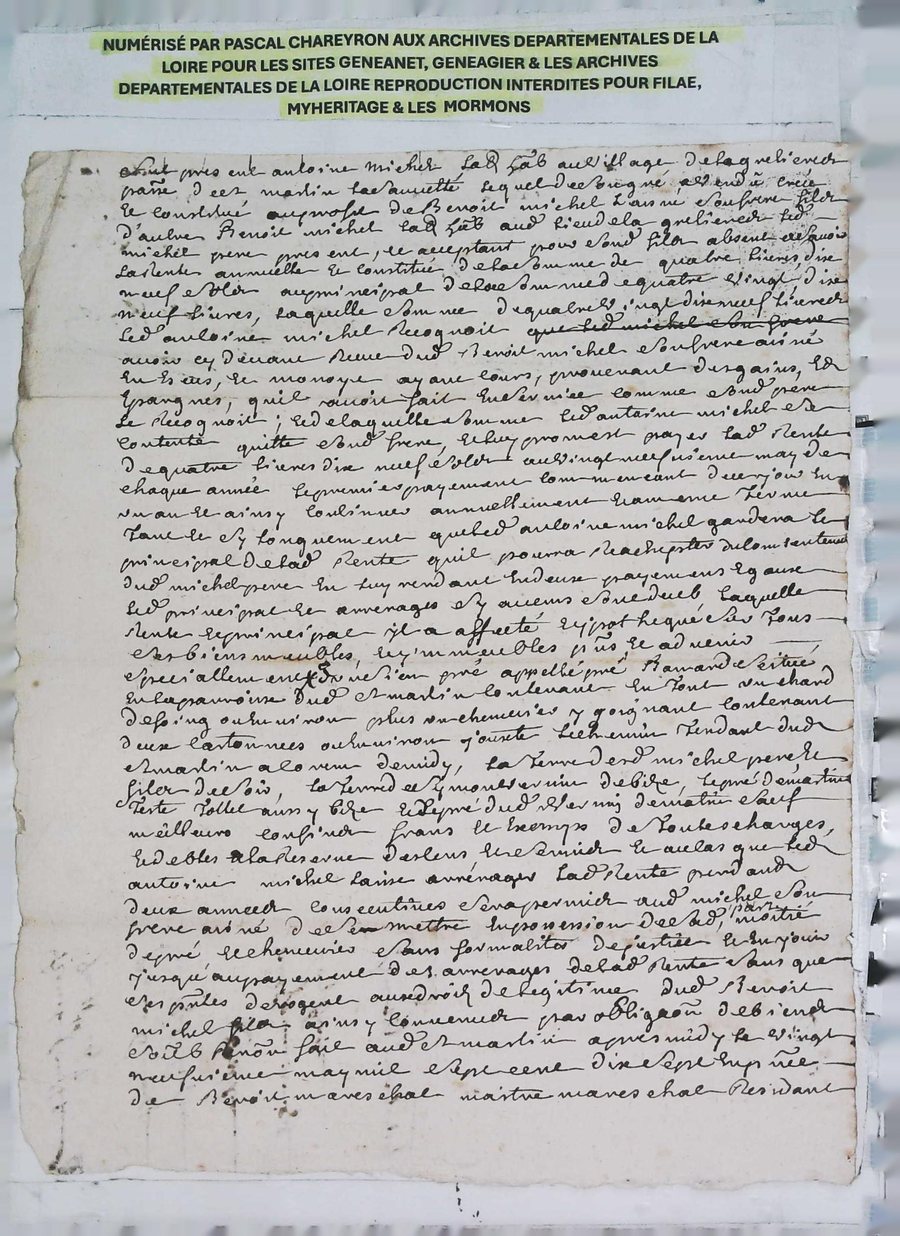 NUMÉRISÉ PAR PASCAL CHAREYRON AUX ARCHIVES DEPARTEMENTALES DE LA
LOIRE POUR LES SITES GENEANET, GENEAGIER & LES ARCHIVES
DEPARTEMENTALES DE LA LOIRE REPRODUCTION INTERDITES POUR FILAE,
MYHERITAGE & LES MORMONS
present antoine michel Lab hab au Village de la
parre de st martin Lequel de Son gré, a Vendu créé
Et Constitué au proffit de Benoit michel Laisné Son frere filz
D'autre Benoit michel Lab hab aud Lieu de la Led
michel pere present, et acceptant pour Soud filz absent
La Rente annuelle Et Constituée de la Somme de quatre Livres, dix
neuf Solz au principal de la Somme de quatre Vingt, dix
neuf Livres, Laquelle Somme de quatre Vingt dix neuf Livres
Led antoine michel Recognoit que Led michel Son frere
avoir cy devant Receu dud Benoit michel Son frere aisné
En Esus, Et monoye ayant Cours, provenant des gains, Et
Epargnes, quil avoit fait En Service Comme Soud pere
Le Recognoit ; Et de laquelle Somme Led antoine michel Se
Contente quitte Soud frere, Et luy promest payer Lad Rente
de quatre Livres dix neuf Solz au Vingt neufsieme may de
chaque année Le premier payement Commencant de ce jour En
un an Et ainsy Continuer annuellement Et a meme Terme
Tant Et Sy longuement que Led antoine michel gardera Le
principal de Lad Rente quil pourra Reachepter du Consentement
dud michel pere En Luy rendant En deux payemens Egaux
Led principal Et arrerages Sy aucuns Sont deub Laquelle
Rente Et principal yl a affecté Et ypothequé Sur Tous
Ses biens meubles, Et ymmeubles pnts Et advenir
Specialement Sur un Sien pré appellé pré Ranard Scitué
En La parroisse dud St martin Contenant En Tout un chard
de foing ou Environ plus un chenevier y joignant Contenant
deux Cartonnees ou Environ jouxte Le chemin Tendant dud
St martin a de midy, La Terre desd michel pere Et
filz de Soir, La Terre de Sy de bize, Le pré de martin
aussy bize Et Le pré dud de matin Sauf
meilleurs Confins frans Et Exemps de Toutes charges,
Et debtes a la Reserve des Cens, Et Servis Et au Cas que Led
antoine michel Laisse arrérager Lad Rente pendant
deux années Consecutives Sera permis aud michel Son
frere aisné de Se mettre En possession de Sad, part moitié
de pré Et chenevier Sans formalités de justice Et En jouir
jusqu'au payement des arrerages de Lad Rente Sans que
Ses pntes derogent aux droitz de legitime dud Benoit
michel filz ainsy Convenu par obligaon de biens
Soub Renon fait aud St martin apres midy Le Vingt
neufsieme may mil Sept cent dix Sept En pnce
de Benoit mareschal maitre mareschal Residant